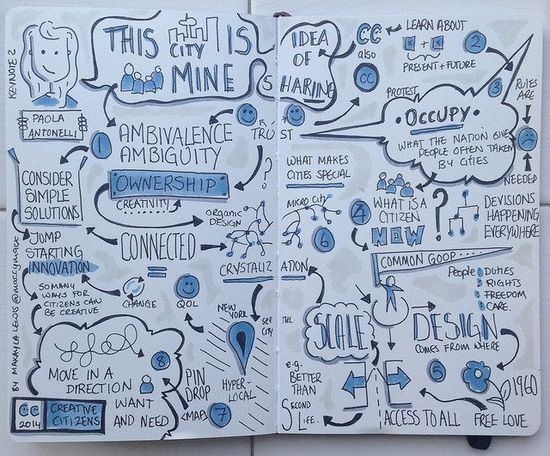 KEYNOTE 2
PAOLA
ANTONELLI
THIS
CITY IS
MINE
IDEA
OF
SHARING
CC
also
CC
LEARN ABOUT
X + X
PRESENT + FUTURE
2
PROTEST
3
RULES
ARE
NEEDED
OCCUPY
WHAT THE NATION GIVE
PEOPLE OFTEN TAKEN
BY CITIES
1
AMBIVALENCE
AMBIGUITY
TRUST
?
OWNERSHIP
CREATIVITY
CONSIDER
SIMPLE
SOLUTIONS
JUMP
STARTING
INNOVATION
SO MANY
WAYS FOR
CITIZENS CAN
BE CREATIVE
CONNECTED
=
CHANGE
QOL
ORGANIC
DESIGN
CRYSTALIZATION
WHAT MAKES
CITIES SPECIAL
MICRO CITY
6
4
WHAT IS A
CITIZEN
NOW
?
DEVISIONS
HAPPENING
EVERYWHERE
COMMON GOOP...
People
DUTIES
RIGHTS
FREEDOM
CARE
NEW
YORK
HYPER-
LOCAL
PIN
DROP
MAPS
7
8
MOVE IN A
DIRECTION
WANT
AND NEED
CC
2014
CREATIVE
CITIZENS
BY MAKAYLA LEWIS @MACCYMACX
SCALE
e.g.
BETTER
THAN
SECOND
LIFE.
DESIGN
COMES FROM WHERE
5
1960
FREE LOVE
ACCESS TO ALL